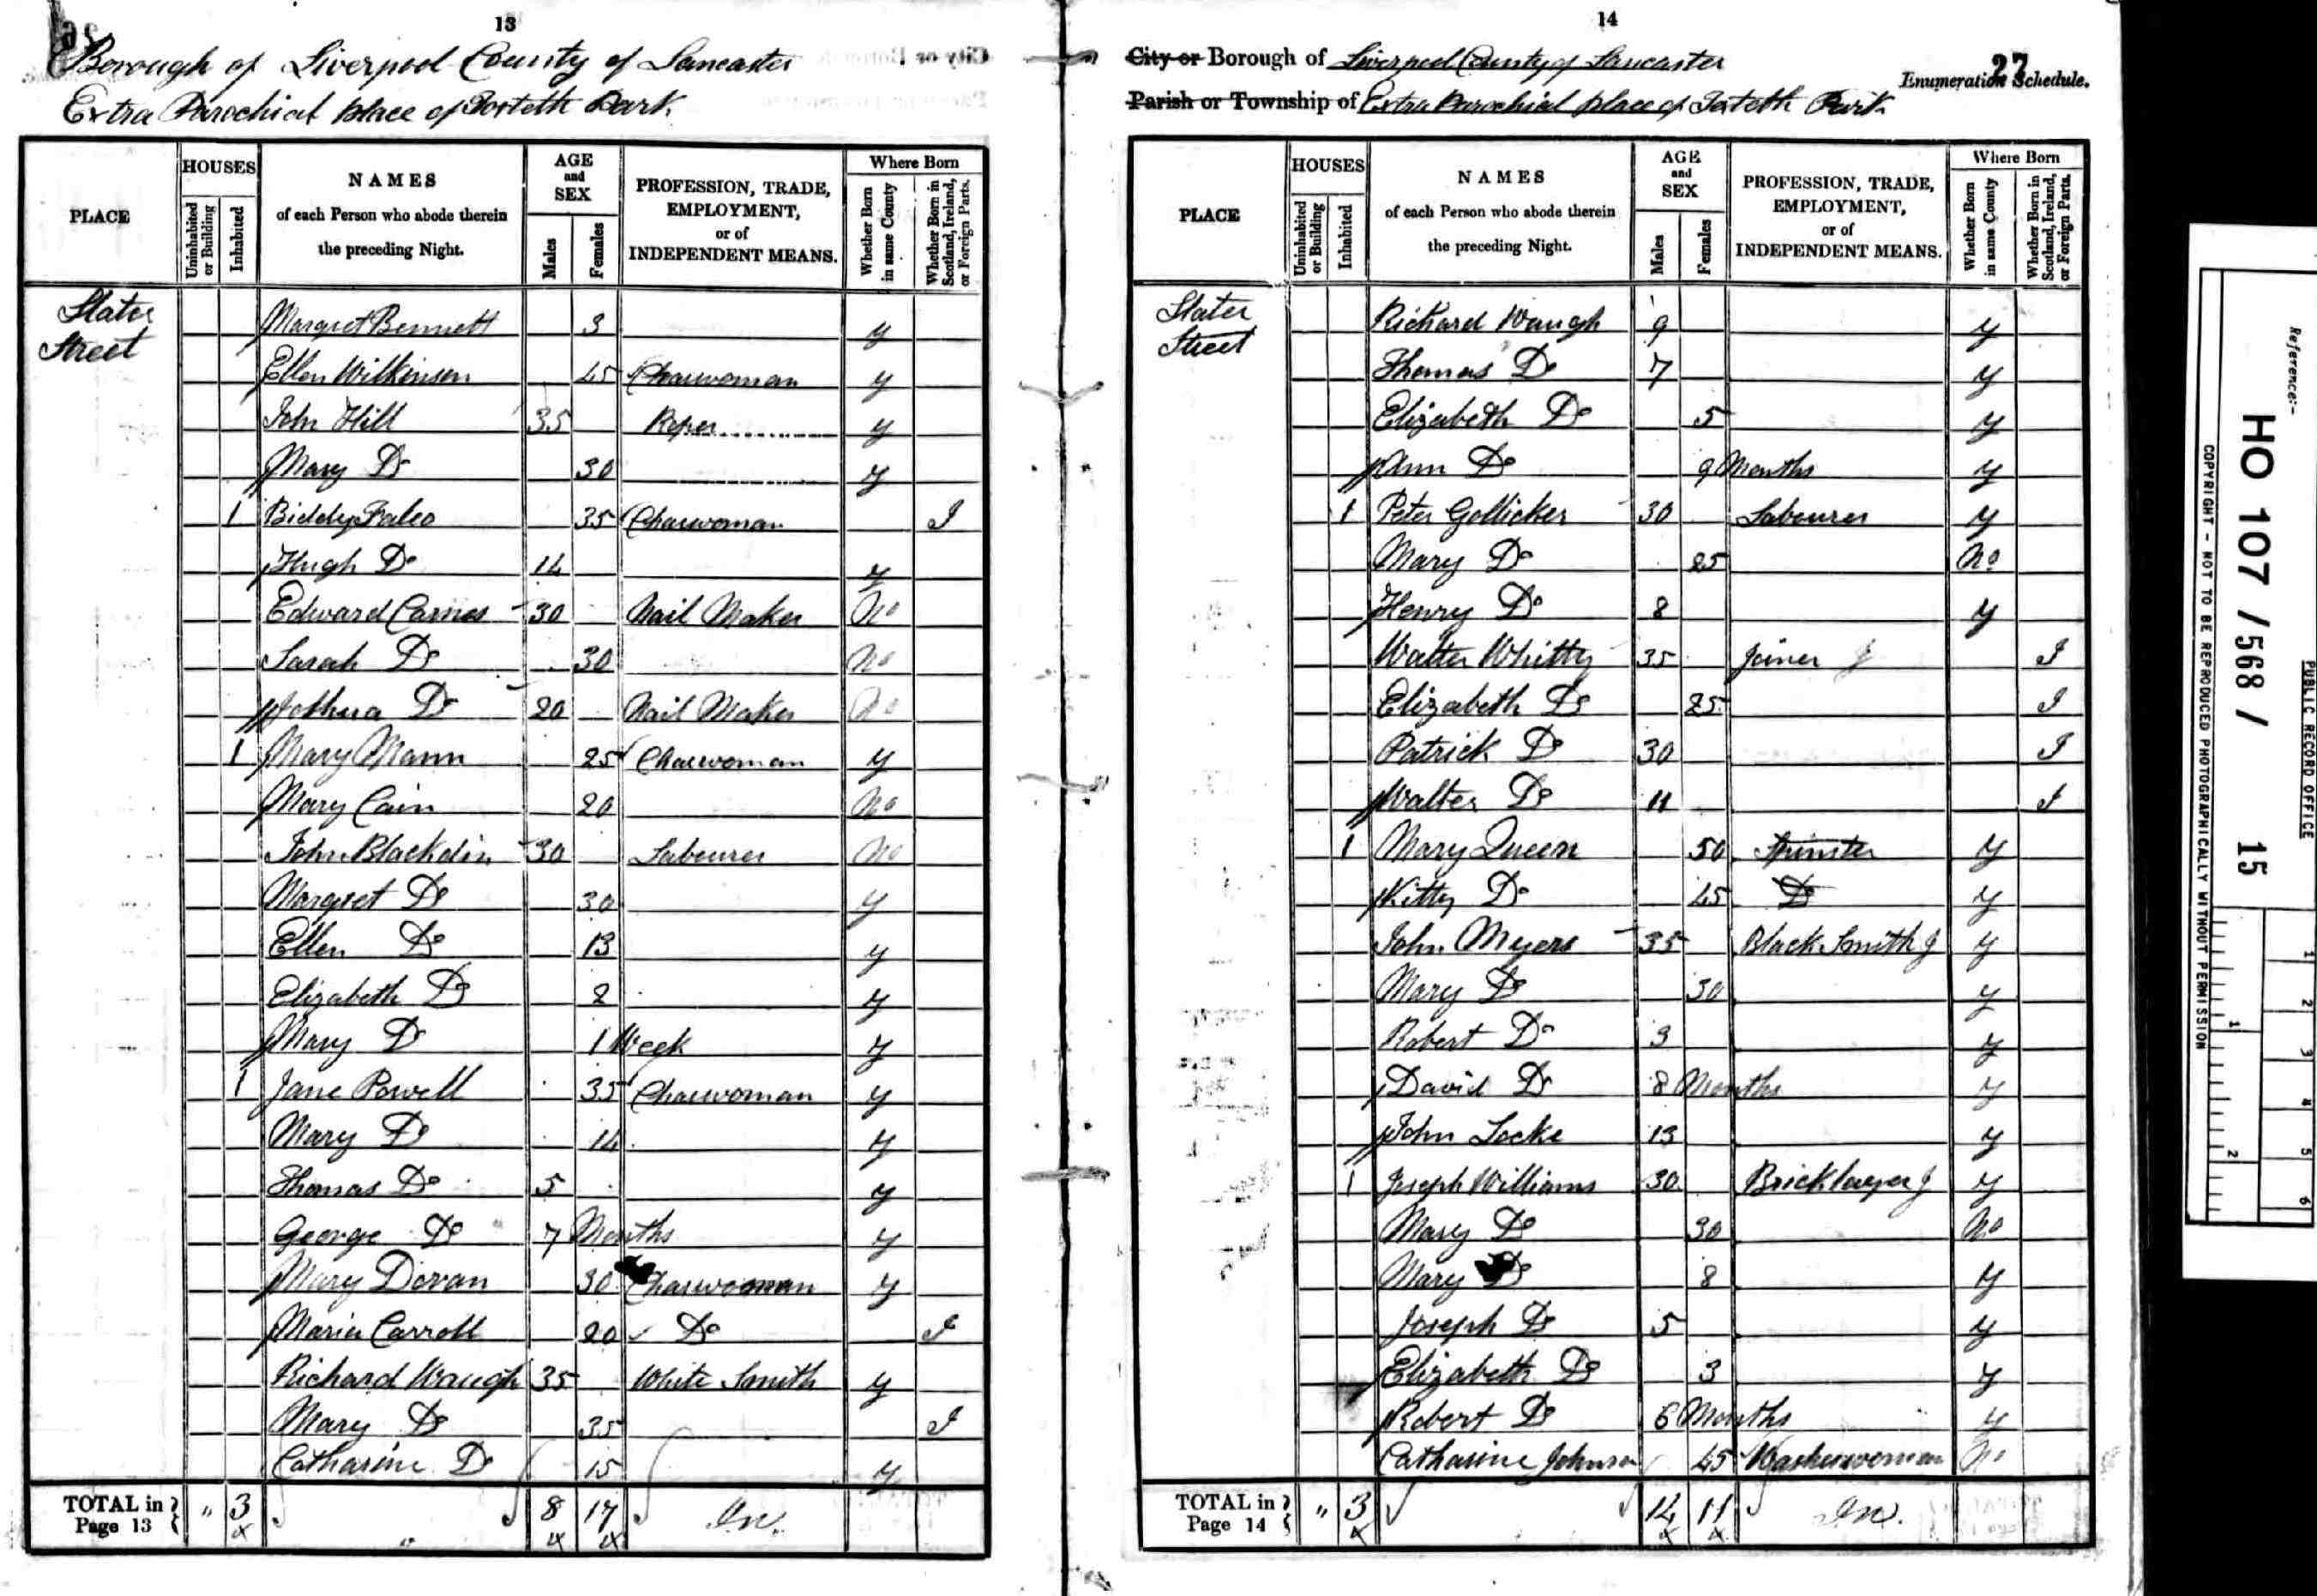 13
Borough of Liverpool County of Lancaster
Extra Parochial place of Toxteth Park
PLACE
HOUSES
Uninhabited or Building
Inhabited
NAMES
of each Person who abode therein
the preceding Night.
AGE
and
SEX
Males
Females
PROFESSION, TRADE,
EMPLOYMENT,
or of
INDEPENDENT MEANS.
Where Born
Whether Born in same County
Whether Born in Scotland, Ireland, or Foreign Parts.
Slater
Street
Margret Bennett 3 y
Ellen Wilkinson 45 Charwoman y
John Hill 35 Roper y
Mary Do 30 y
1 Biddy 35 Charwoman I
Hugh Do 14 y
Edward Carnes 30 Nail Maker No
Sarah Do 30 No
Joshua Do 20 Nail Maker No
1 Mary Mann 25 Charwoman y
Mary Cain 20 No
John Blackdin 30 Labourer No
Margret Do 30 y
Ellen Do 13 y
Elizabeth Do 2 y
Mary Do 1 Week y
1 Jane Powell 35 Charwoman y
Mary Do 14 y
Thomas Do 5 y
George Do 7 Months y
Mary Doran 30 Charwoman y
Maria Carroll 20 Do I
Richard Waugh 35 White Smith y
Mary Do 35 I
Catharine Do 15 y
TOTAL in Page 13 " 3 8 17
14
City or Borough of Liverpool County of Lancaster
27
Enumeration Schedule.
Parish or Township of Extra Parochial place of Toxteth Park
PLACE
HOUSES
Uninhabited or Building
Inhabited
NAMES
of each Person who abode therein
the preceding Night.
AGE
and
SEX
Males
Females
PROFESSION, TRADE,
EMPLOYMENT,
or of
INDEPENDENT MEANS.
Where Born
Whether Born in same County
Whether Born in Scotland, Ireland, or Foreign Parts.
Slater
Street
Richard Waugh 9 y
Thomas Do 7 y
Elizabeth Do 5 y
Ann Do 9 Months y
1 Peter Gollicker 30 Labourer y
Mary Do 25 No
Henry Do 8 y
Walter Whitty 35 Joiner J I
Elizabeth Do 25 I
Patrick Do 30 I
Walter Do 11 I
1 Mary Queen 50 Spinster y
Kitty Do 45 Do y
John Meyers 35 Black Smith J y
Mary Do 30 y
Robert Do 3 y
David Do 8 Months y
John Locke 13 y
1 Joseph Williams 30 Bricklayer J y
Mary Do 30 No
Mary Do 8 y
Joseph Do 5 y
Elizabeth Do 3 y
Robert Do 6 Months y
Catharine Johnson 45 Washerwoman No
TOTAL in Page 14 " 3 14 11
Reference:-
HO 107 /568 / 15
PUBLIC RECORD OFFICE
COPYRIGHT - NOT TO BE REPRODUCED PHOTOGRAPHICALLY WITHOUT PERMISSION
1
2
1 2 3 4 5 6